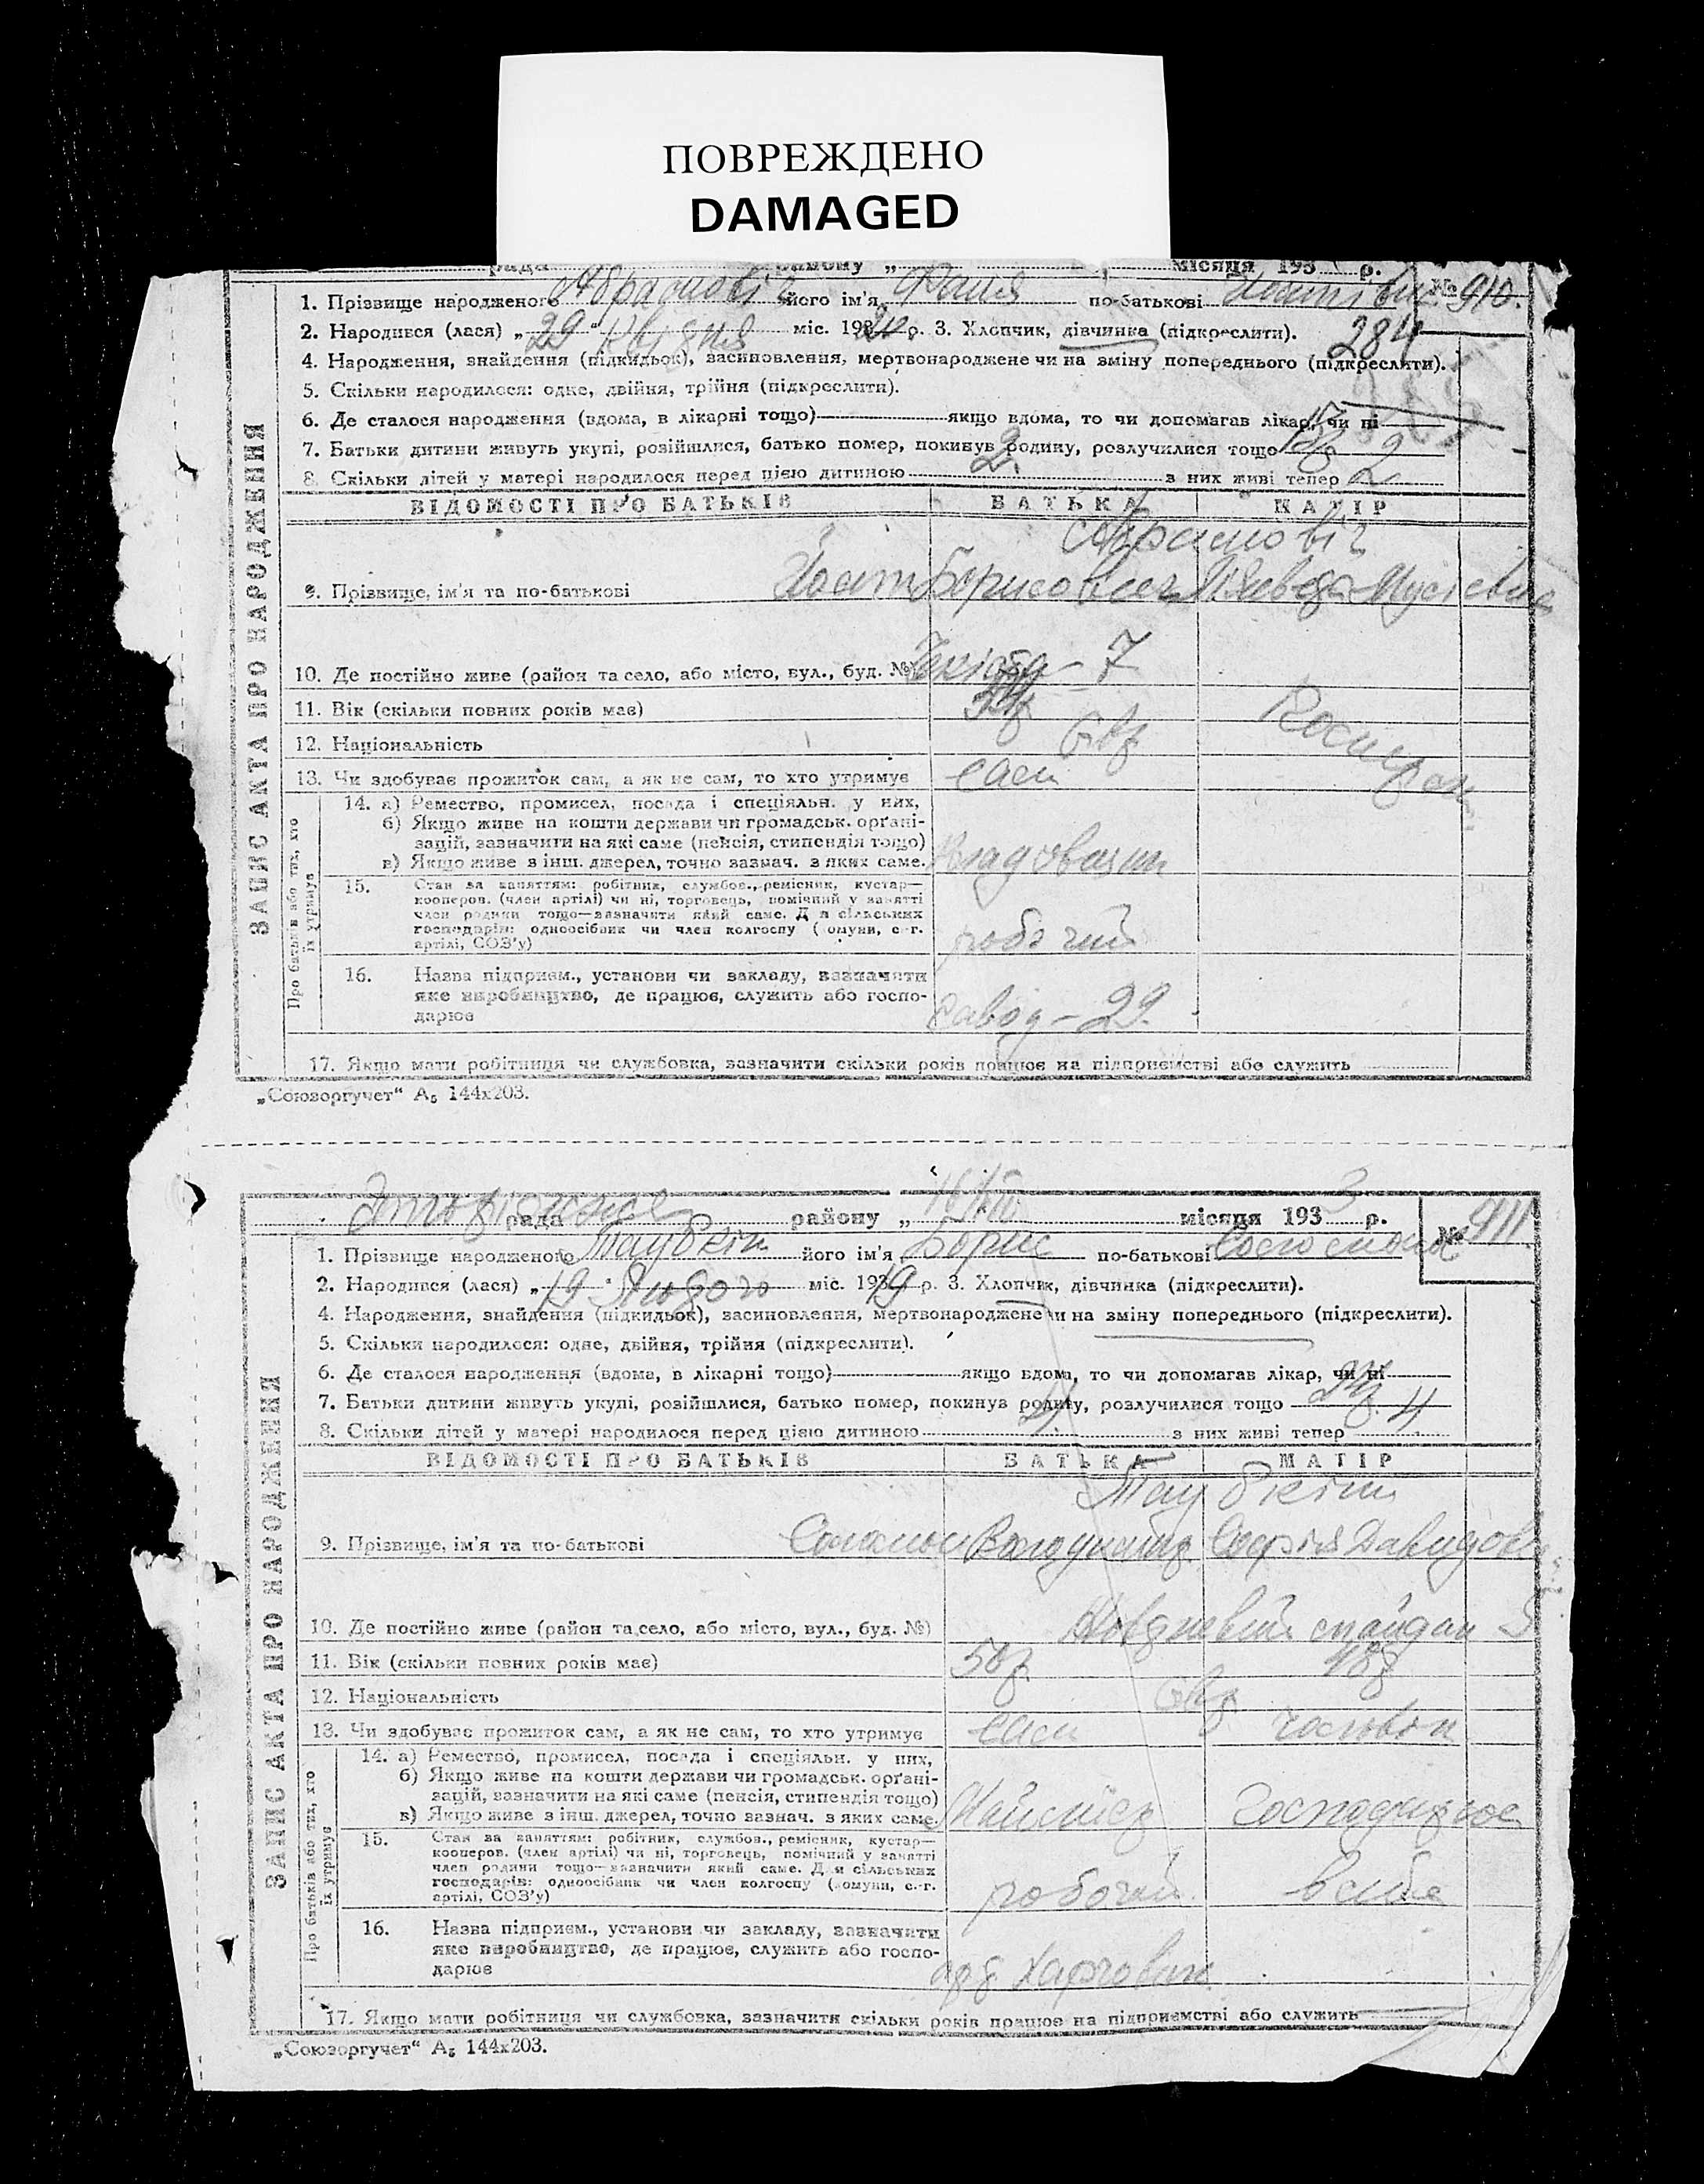 ПОВРЕЖДЕНО
DAMAGED
рада району „ місяця 193 р.
№ 910.
1. Прізвище народженого Абрамовіч його ім'я Фаня по-батькові
2. Народився (лася) „29" Квітня міс. 193 р. 3. Хлопчик, дівчинка (підкреслити). 284
4. Народження, знайдення (підкидьок), засиновлення, мертвонароджене чи на зміну попереднього (підкреслити).
5. Скільки народилося: одне, двійня, трійня (підкреслити).
6. Де сталося народження (вдома, в лікарні тощо) якщо вдома, то чи допомагав лікар, чи ні
7. Батьки дитини живуть укупі, розійшлися, батько помер, покинув родину, розлучилися тощо
8. Скільки дітей у матері народилося перед цією дитиною 2 з них живі тепер 2
ВІДОМОСТІ ПРО БАТЬКІВ БАТЬКА МАТІР
Абрамовіч
9. Прізвище, ім'я та по-батькові Борисович Мусіевна
10. Де постійно живе (район та село, або місто, вул., буд. №) 7
11. Вік (скільки повних років має)
12. Національність Євр
13. Чи здобуває прожиток сам, а як не сам, то хто утримує сам
14. а) Ремество, промисел, посада і спеціяльн. у них,
б) Якщо живе на кошти держави чи громадськ. орґані-
зацій, зазначити на які саме (пенсія, стипендія тощо)
в) Якщо живе з інш. джерел, точно зазнач. з яких саме.
15. Стан за заняттям: робітник, службов., ремісник, кустар—
кооперов. (член артілі) чи ні, торговець, помічний у занятті
член родини тощо—зазначити який саме. Для сільських
господарів: одноосібник чи член колгоспу (комуни, с.-г.
артілі, СОЗ'у)
робочий
16. Назва підприєм., установи чи закладу, зазначити
яке виробництво, де працює, служить або госпо-
дарює
завод – 29.
17. Якщо мати робітниця чи службовка, зазначити скільки років працює на підприємстві або служить
ЗАПИС АКТА ПРО НАРОДЖЕННЯ
Про батьків або тих, хто їх утримує
„Союзоргучет" А₅ 144х203.
рада району „ місяця 193 3 р.
№ 911
1. Прізвище народженого Таубкін його ім'я Борис по-батькові
2. Народився (лася) „19" Лютого міс. 1919 р. 3. Хлопчик, дівчинка (підкреслити).
4. Народження, знайдення (підкидьок), засиновлення, мертвонароджене чи на зміну попереднього (підкреслити).
5. Скільки народилося: одне, двійня, трійня (підкреслити).
6. Де сталося народження (вдома, в лікарні тощо) якщо вдома, то чи допомагав лікар, чи ні
7. Батьки дитини живуть укупі, розійшлися, батько помер, покинув родину, розлучилися тощо
8. Скільки дітей у матері народилося перед цією дитиною 4 з них живі тепер 4
ВІДОМОСТІ ПРО БАТЬКІВ БАТЬКА МАТІР
Таубкін
9. Прізвище, ім'я та по-батькові Соломон Володимир Софія Давидов
10. Де постійно живе (район та село, або місто, вул., буд. №) майдан 5
11. Вік (скільки повних років має) 50р 48р
12. Національність Євр
13. Чи здобуває прожиток сам, а як не сам, то хто утримує сам чоловік
14. а) Ремество, промисел, посада і спеціяльн. у них,
б) Якщо живе на кошти держави чи громадськ. орґані-
зацій, зазначити на які саме (пенсія, стипендія тощо)
в) Якщо живе з інш. джерел, точно зазнач. з яких саме.
Майстер Господарює
15. Стан за заняттям: робітник, службов., ремісник, кустар—
кооперов. (член артілі) чи ні, торговець, помічний у занятті
член родини тощо—зазначити який саме. Для сільських
господарів: одноосібник чи член колгоспу (комуни, с.-г.
артілі, СОЗ'у)
робочий.
16. Назва підприєм., установи чи закладу, зазначити
яке виробництво, де працює, служить або госпо-
дарює
17. Якщо мати робітниця чи службовка, зазначити скільки років працює на підприємстві або служить
ЗАПИС АКТА ПРО НАРОДЖЕННЯ
Про батьків або тих, хто їх утримує
„Союзоргучет" А₅ 144х203.